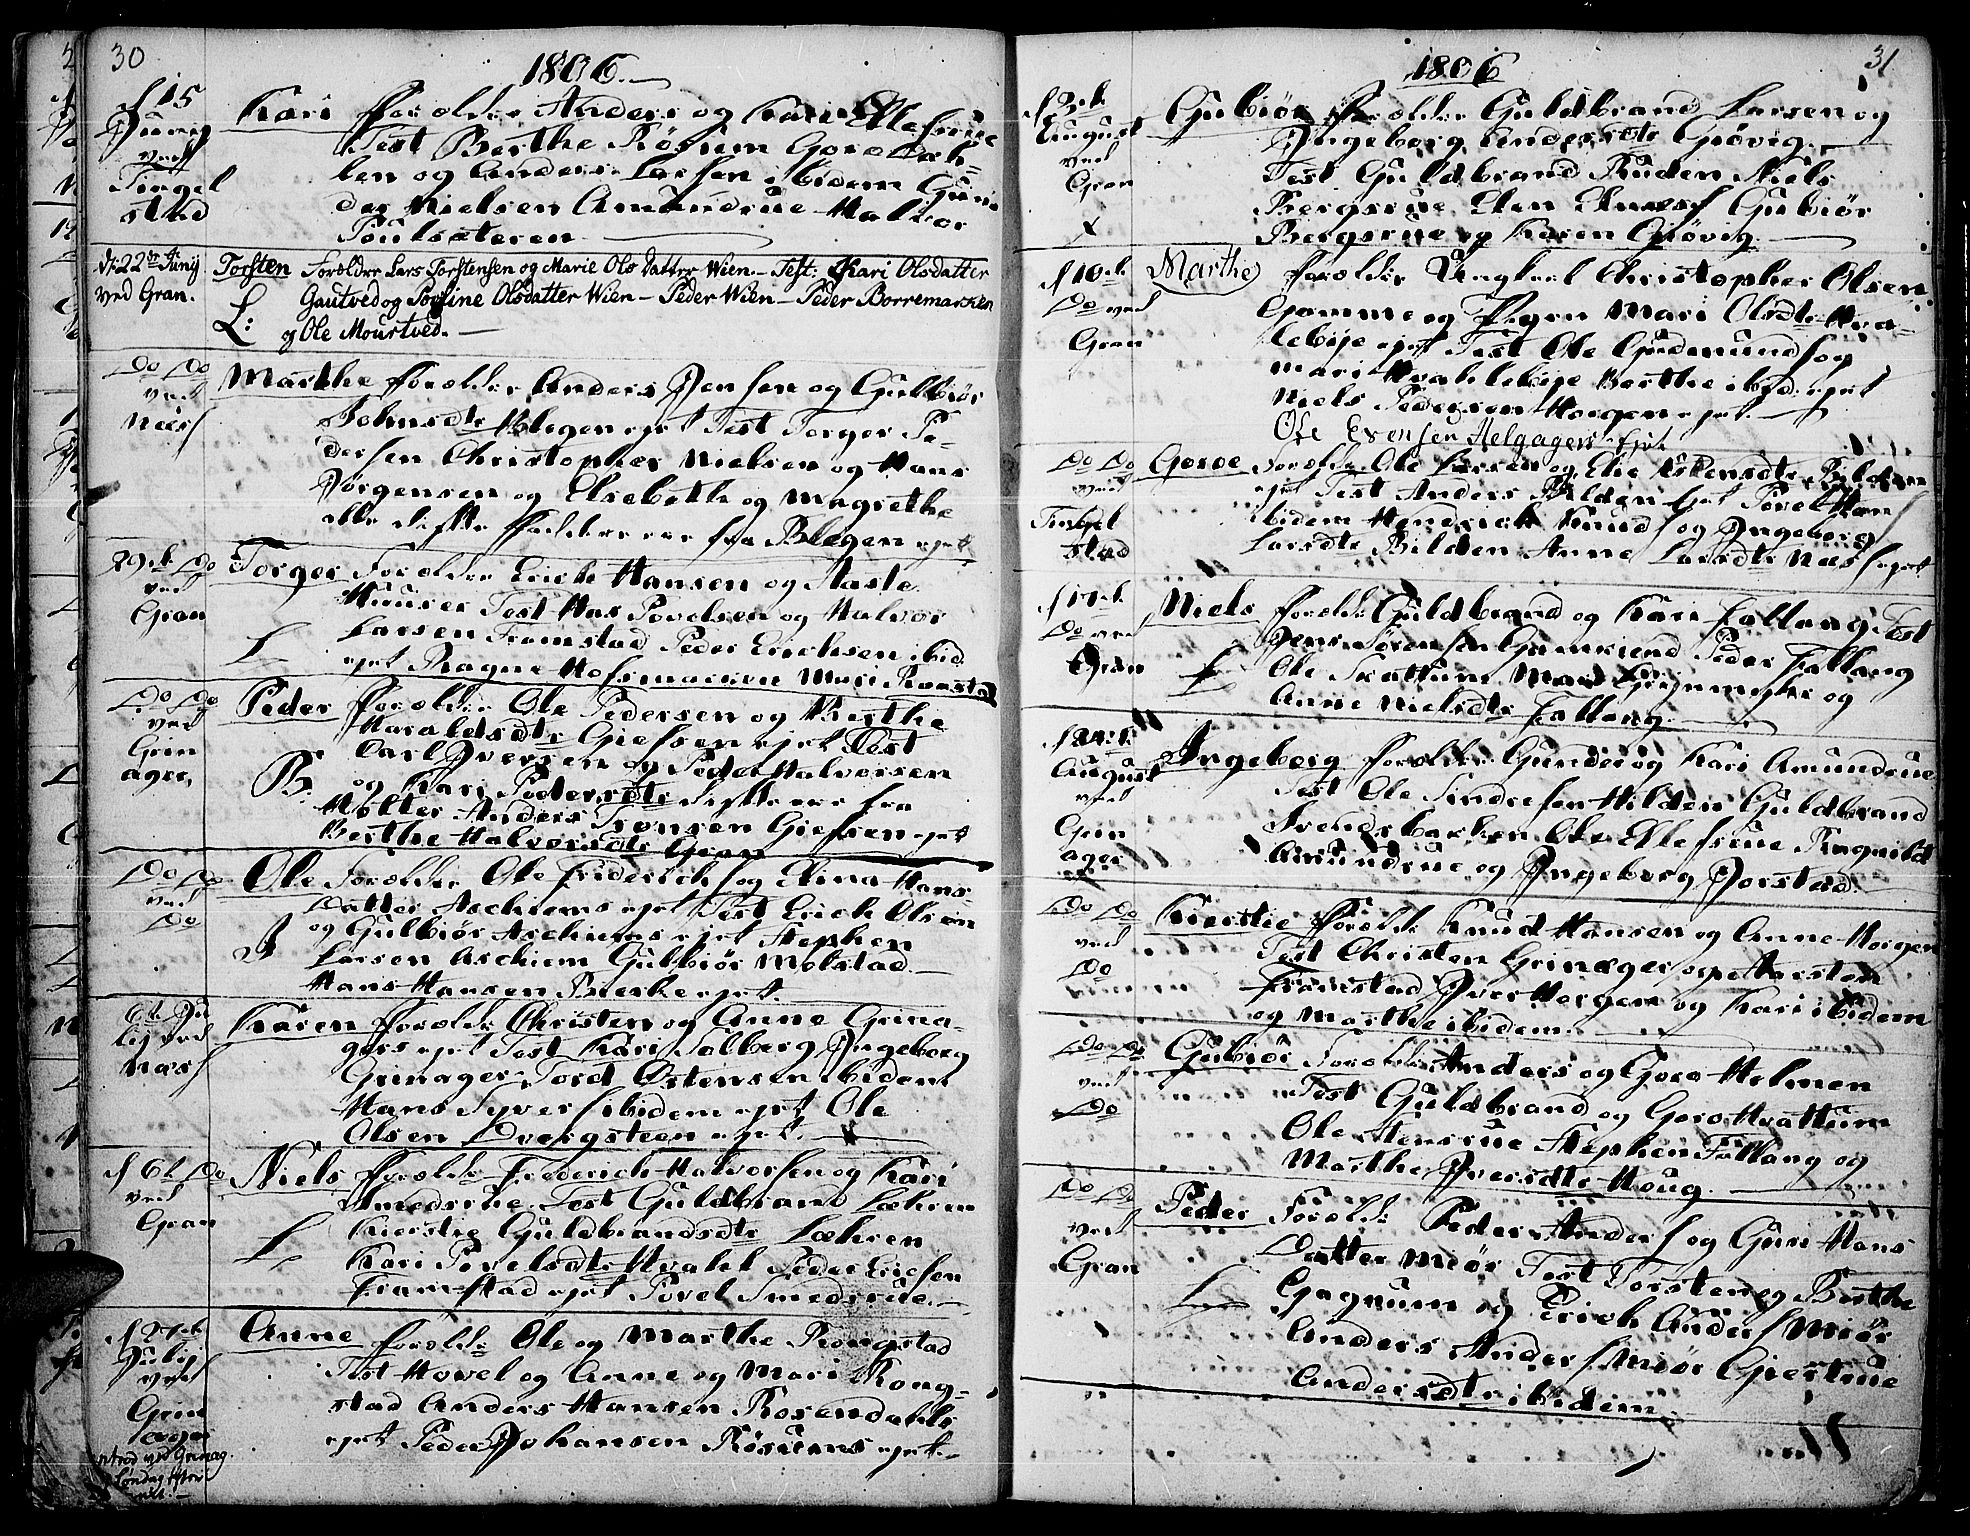 30
1806.
d 15
Juny
ved
Tingel
stad
Kari Forældre Anders og Kari Ellefsrue
Test Berthe Røsum Goro Dæh-
len og Anders Larsen ibidem Gun
der Nielsen Amundrue Halvor
Poulsæteren
d: 22de Juny
ved Gran.
Torsten Forældre Lars Torstensen og Marie Ols Datter Wien - Test: Kari Olsdatter
Gautved og Pornine Olsdatter Wien - Peder Wien - Peder Borremarken
L: og Ole Mourtved.
Do Do
ved
Næss
Marthe Forældre Anders Jensen og Gulbiør
Johnsdtr Blegen ejet Test Torger Pe-
dersen Christopher Nielsen og Hans
Jørgensen og Elsebeth og Magrethe
alle disse Faddere ere fra Blegen ejet
29de Do
ved
Gran
Torger Forældre Erich Hansen og Aaste
Huuser Test Has Povelsen og Halvor
L Larsen Framstad Peder Erichsen ibid
ejet Ragne Hofsmarken Mari Raasta
Do Do
ved
Grin
ager,
Peder Forældre Ole Pedersen og Berthe
Haraldsdtr Giefsen ejet Test
Carl Iversen og Peder Halvorsen
B. og Kari Pedersdtr disse ere fra
Molter Anders Tronsen Giefsen ejet
Berthe Halvorsdtr Gran
Do Do
ved
Do
Ole Forældre Ole Friderichs og Elina Hans
Datter Aschiems ejet Test Erich Olsen
og Gulbiør Aschiems ejet Stephen
Larsen Aschiem Gulbiør Molstad
Hans Hansen Bierke ejet.
6te Ju
lij ved
Næss
Karen Forældre Christen og Anne Grina-
gers ejet Test Kari Solberg Ingeborg
Grinager Tord Østensen ibidem
Hans Syvers ibidem ejet Ole
Olsen Dvergsteen ejet.
d 6te Do
ved
Gran
Niels Forældre Frederich Halvorsen og Kari
Smedsrue Test Guldbrand Læhren
L Kierstie Guldbrandsdtr Læhren
Kari Povelsdtr Hvalel Peder Ericsen
Framstad ejet Povel Smedsrue.
d 27de
Julij
ved
Grin
ager
Anne Forældre Ole og Marthe Rongstad
Test Hovel og Anne og Mari Rong-
stad Anders Hansen Rosendahls
ejet Peder Johansen Røsums ejet.
31
1806
d 3de
August
ved
Gran
Gubiør Forældre Guldbrand Larsen og
Ingeborg Andersdtr Giøvig.
Test Guldbrand Ruden Niels
Bergsrue Elen Enness Gubiør
Bergsrue og Karen Giøvig
d 10de
Do ved
Gran
Marthe Forældre Ungkarl Christopher Olsen
Gamme og Pigen Mari Olsdtr Hva-
lebije ejet Test Ole Gudmunds og
Mari Hvalebije Berthe ibid: ejet
Niels Pedersen Horgen ejet.
Ole Evensen Helgagers Ejet
Do Do
ved
Tingel
stad
Goroe Forældre Ole Larsen og Elie Estensdtr Bilden
ejet Test Anders Bilden ejet Povel Hans
ibidem Hendrich Knuds og Ingeborg
Larsdtr Bilden Anne Larsdtr Næss ejet
d 17de
Do ved
Gran
Niels Forældre Guldbrand og Kari Fallang Test
Jens Sørensen Gamkiend Peder Fallang
L Ole Skattum Mari Grinnager og
Anne Nielsdtr Fallang.
d 24de
August
ved
Grin
ager
Ingeborg Forældre Gunder og Kari Amundrue
Test Ole Sindresen Hilden Guldbrand
Svendsbakken Ole Ellefsrue Ragnild
Amundrue og Ingeborg Jorstad.
Do Do
ved
Do
Kierstie Forældre Knud Hansen og Anne Horgen
Test Christen Grinager ejet Karsten
Framstad Iver Horgen og Kari ibidem
og Marthe ibidem.
Do Do
ved
Do
Gubiør Forældre Anders og Goro Helmen
Test Guldbrand og Goro Hvattum
Ole Stensrue Stephen Fallang og
Marthe Iversdtr Houg.
Do Do
ved
Gran
Peder Forældre Peder Anders og Guri Hans
Datter Miør Test Torsten og Berthe
L Gagnum og Erich Anders Miør
Anders Anders Miør Giertrue
Andersdtr ibidem.